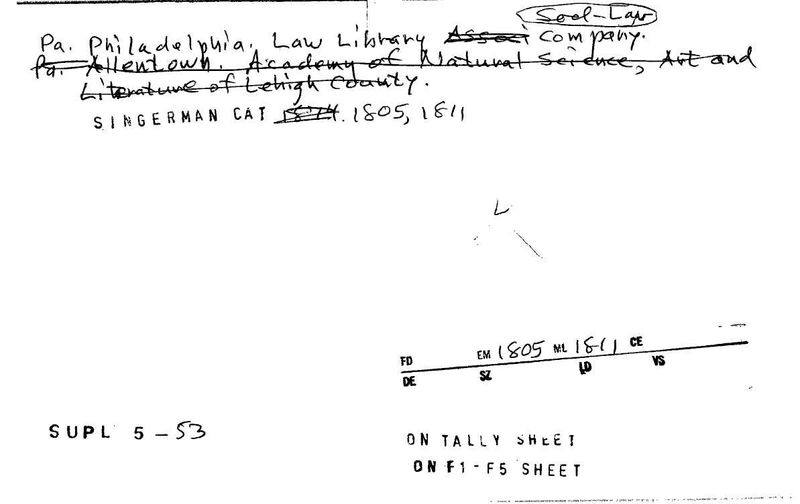 Socl-Law
Pa. Philadelphia. Law Library Associ Company.
Pa. Allentown. Academy of Natural Science, Art and
Literature of Lehigh County.
SINGERMAN CAT 1874. 1805, 1811
L
FD EM 1805 ML 1811 CE
DE SZ LD VS
SUPL 5-53
ON TALLY SHEET
ON F1-F5 SHEET